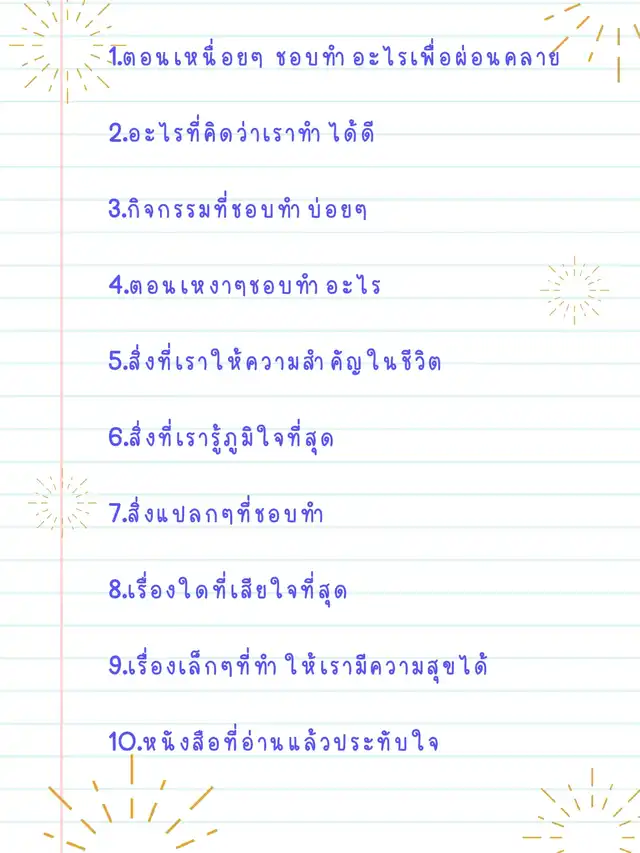 1.ตอนเหนื่อยๆ ชอบทำอะไรเพื่อผ่อนคลาย
2.อะไรที่คิดว่าเราทำได้ดี
3.กิจกรรมที่ชอบทำบ่อยๆ
4.ตอนเหงาๆชอบทำอะไร
5.สิ่งที่เราให้ความสำคัญในชีวิต
6.สิ่งที่เรารู้ภูมิใจที่สุด
7.สิ่งแปลกๆที่ชอบทำ
8.เรื่องใดที่เสียใจที่สุด
9.เรื่องเล็กๆที่ทำให้เรามีความสุขได้
10.หนังสือที่อ่านแล้วประทับใจ